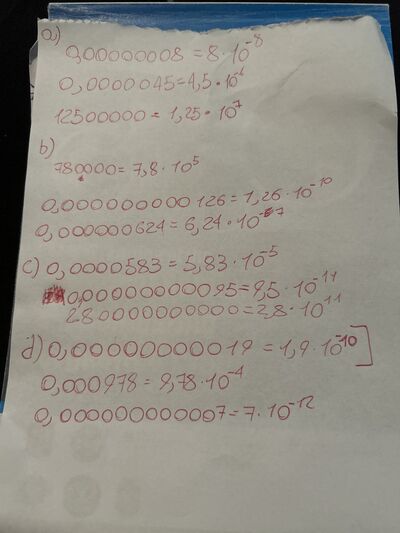 a)
0,00000008 = 8·10⁻⁸
0,0000045=4,5·10⁻⁶
12500000 = 1,25·10⁷
b)
780000=7,8·10⁵
0,000000000126=1,26·10⁻¹⁰
0,000000624=6,24·10⁻⁷
c) 0,0000583=5,83·10⁻⁵
0,000000000095=9,5·10⁻¹¹
280000000000=2,8·10¹¹
d) 0,00000000019=1,9·10⁻¹⁰]
0,000978=9,78·10⁻⁴
0,000000000007=7·10⁻¹²